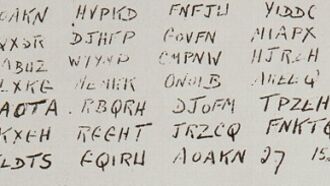 OAKN HVPKD FNFJW YIDDC
QXSR DJHFP GOVFN MIAPX
ABUZ WYYNP CMPNW HJRZH
LXKG MEMKK ONOIB AKEEQ
AOTA RBQRH DJOFM TPZEH
KXGH RGGHT JRZCQ FNKTQ
LDTS FQIRW AOAKN 27 15